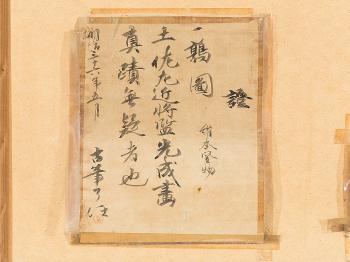 證
一鶉圖
紙本竪物
土佐左近将監光成畫
真蹟無疑者也
明治三十六年五月
古筆了任